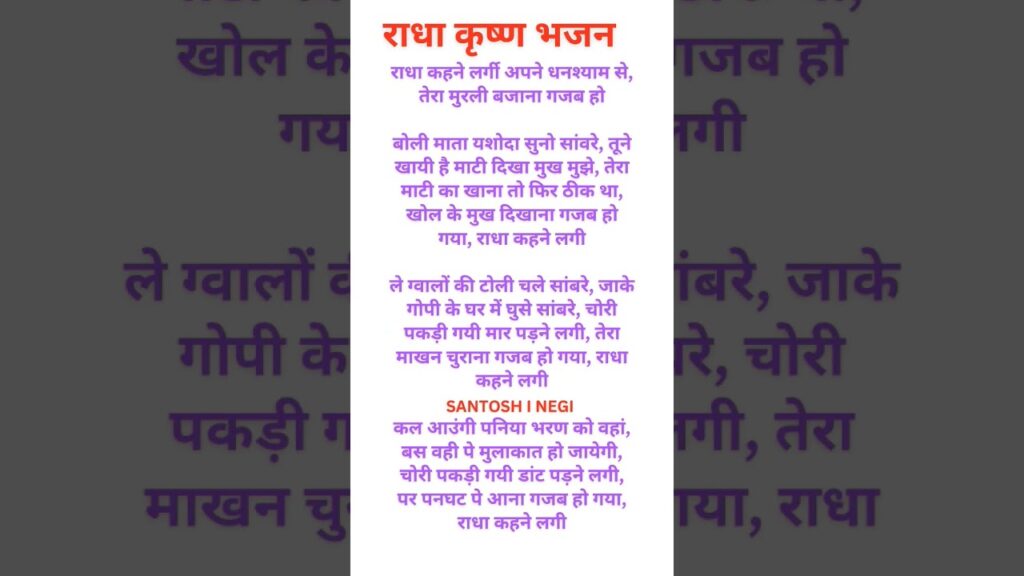 राधा कृष्ण भजन
राधा कहने लगीं अपने धनश्याम से,
तेरा मुरली बजाना गजब हो
बोली माता यशोदा सुनो सांवरे, तूने
खायी है माटी दिखा मुख मुझे, तेरा
माटी का खाना तो फिर ठीक था,
खोल के मुख दिखाना गजब हो
गया, राधा कहने लगी
ले ग्वालों की टोली चले सांबरे, जाके
गोपी के घर में घुसे सांबरे, चोरी
पकड़ी गयी मार पड़ने लगी, तेरा
माखन चुराना गजब हो गया, राधा
कहने लगी
SANTOSH I NEGI
कल आउंगी पनिया भरण को वहां,
बस वही पे मुलाकात हो जायेगी,
चोरी पकड़ी गयी डांट पड़ने लगी,
पर पनघट पे आना गजब हो गया,
राधा कहने लगी